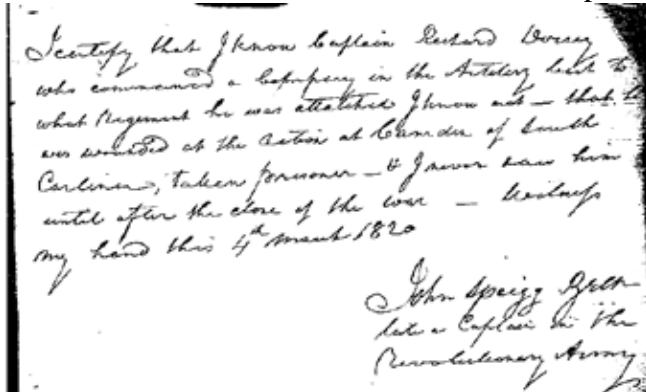 I certify that I know Captain Richard Dorsey
who commanded a Company in the Artilery but to
what Regiment he was attatched I know not – that he
was wounded at the action at Camden of South
Carlina, taken prisoner – & I never saw him
until after the close of the war – Witness
my hand this 4th March 1820
John Sprigg Belt
late a Captain in the
Revolutionary Army